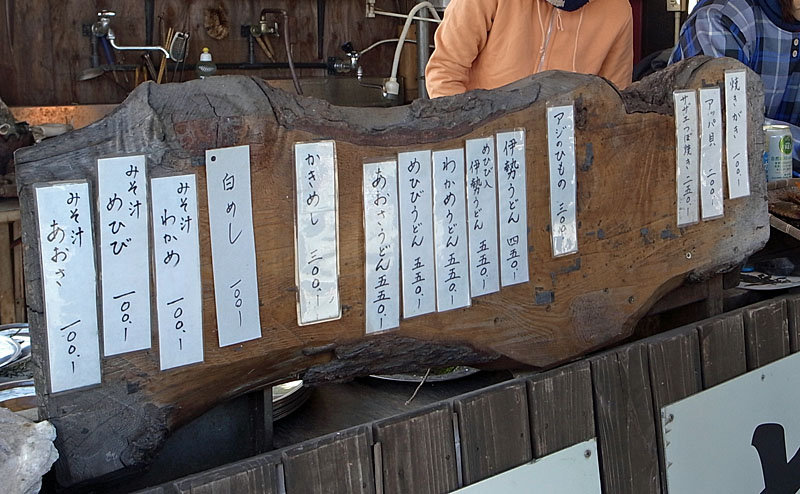 焼きがき 一〇〇.-
アッパ貝 二〇〇.-
サザエつぼ焼き 二五〇.-
アジのひもの 三〇〇.-
伊勢うどん 四五〇.-
めひび入 伊勢うどん 五五〇.-
わかめうどん 五五〇.-
めひびうどん 五五〇.-
あおさうどん 五五〇.-
かきめし 三〇〇.-
白めし 一〇〇.-
みそ汁 わかめ 一〇〇.-
みそ汁 めひび 一〇〇.-
みそ汁 あおさ 一〇〇.-